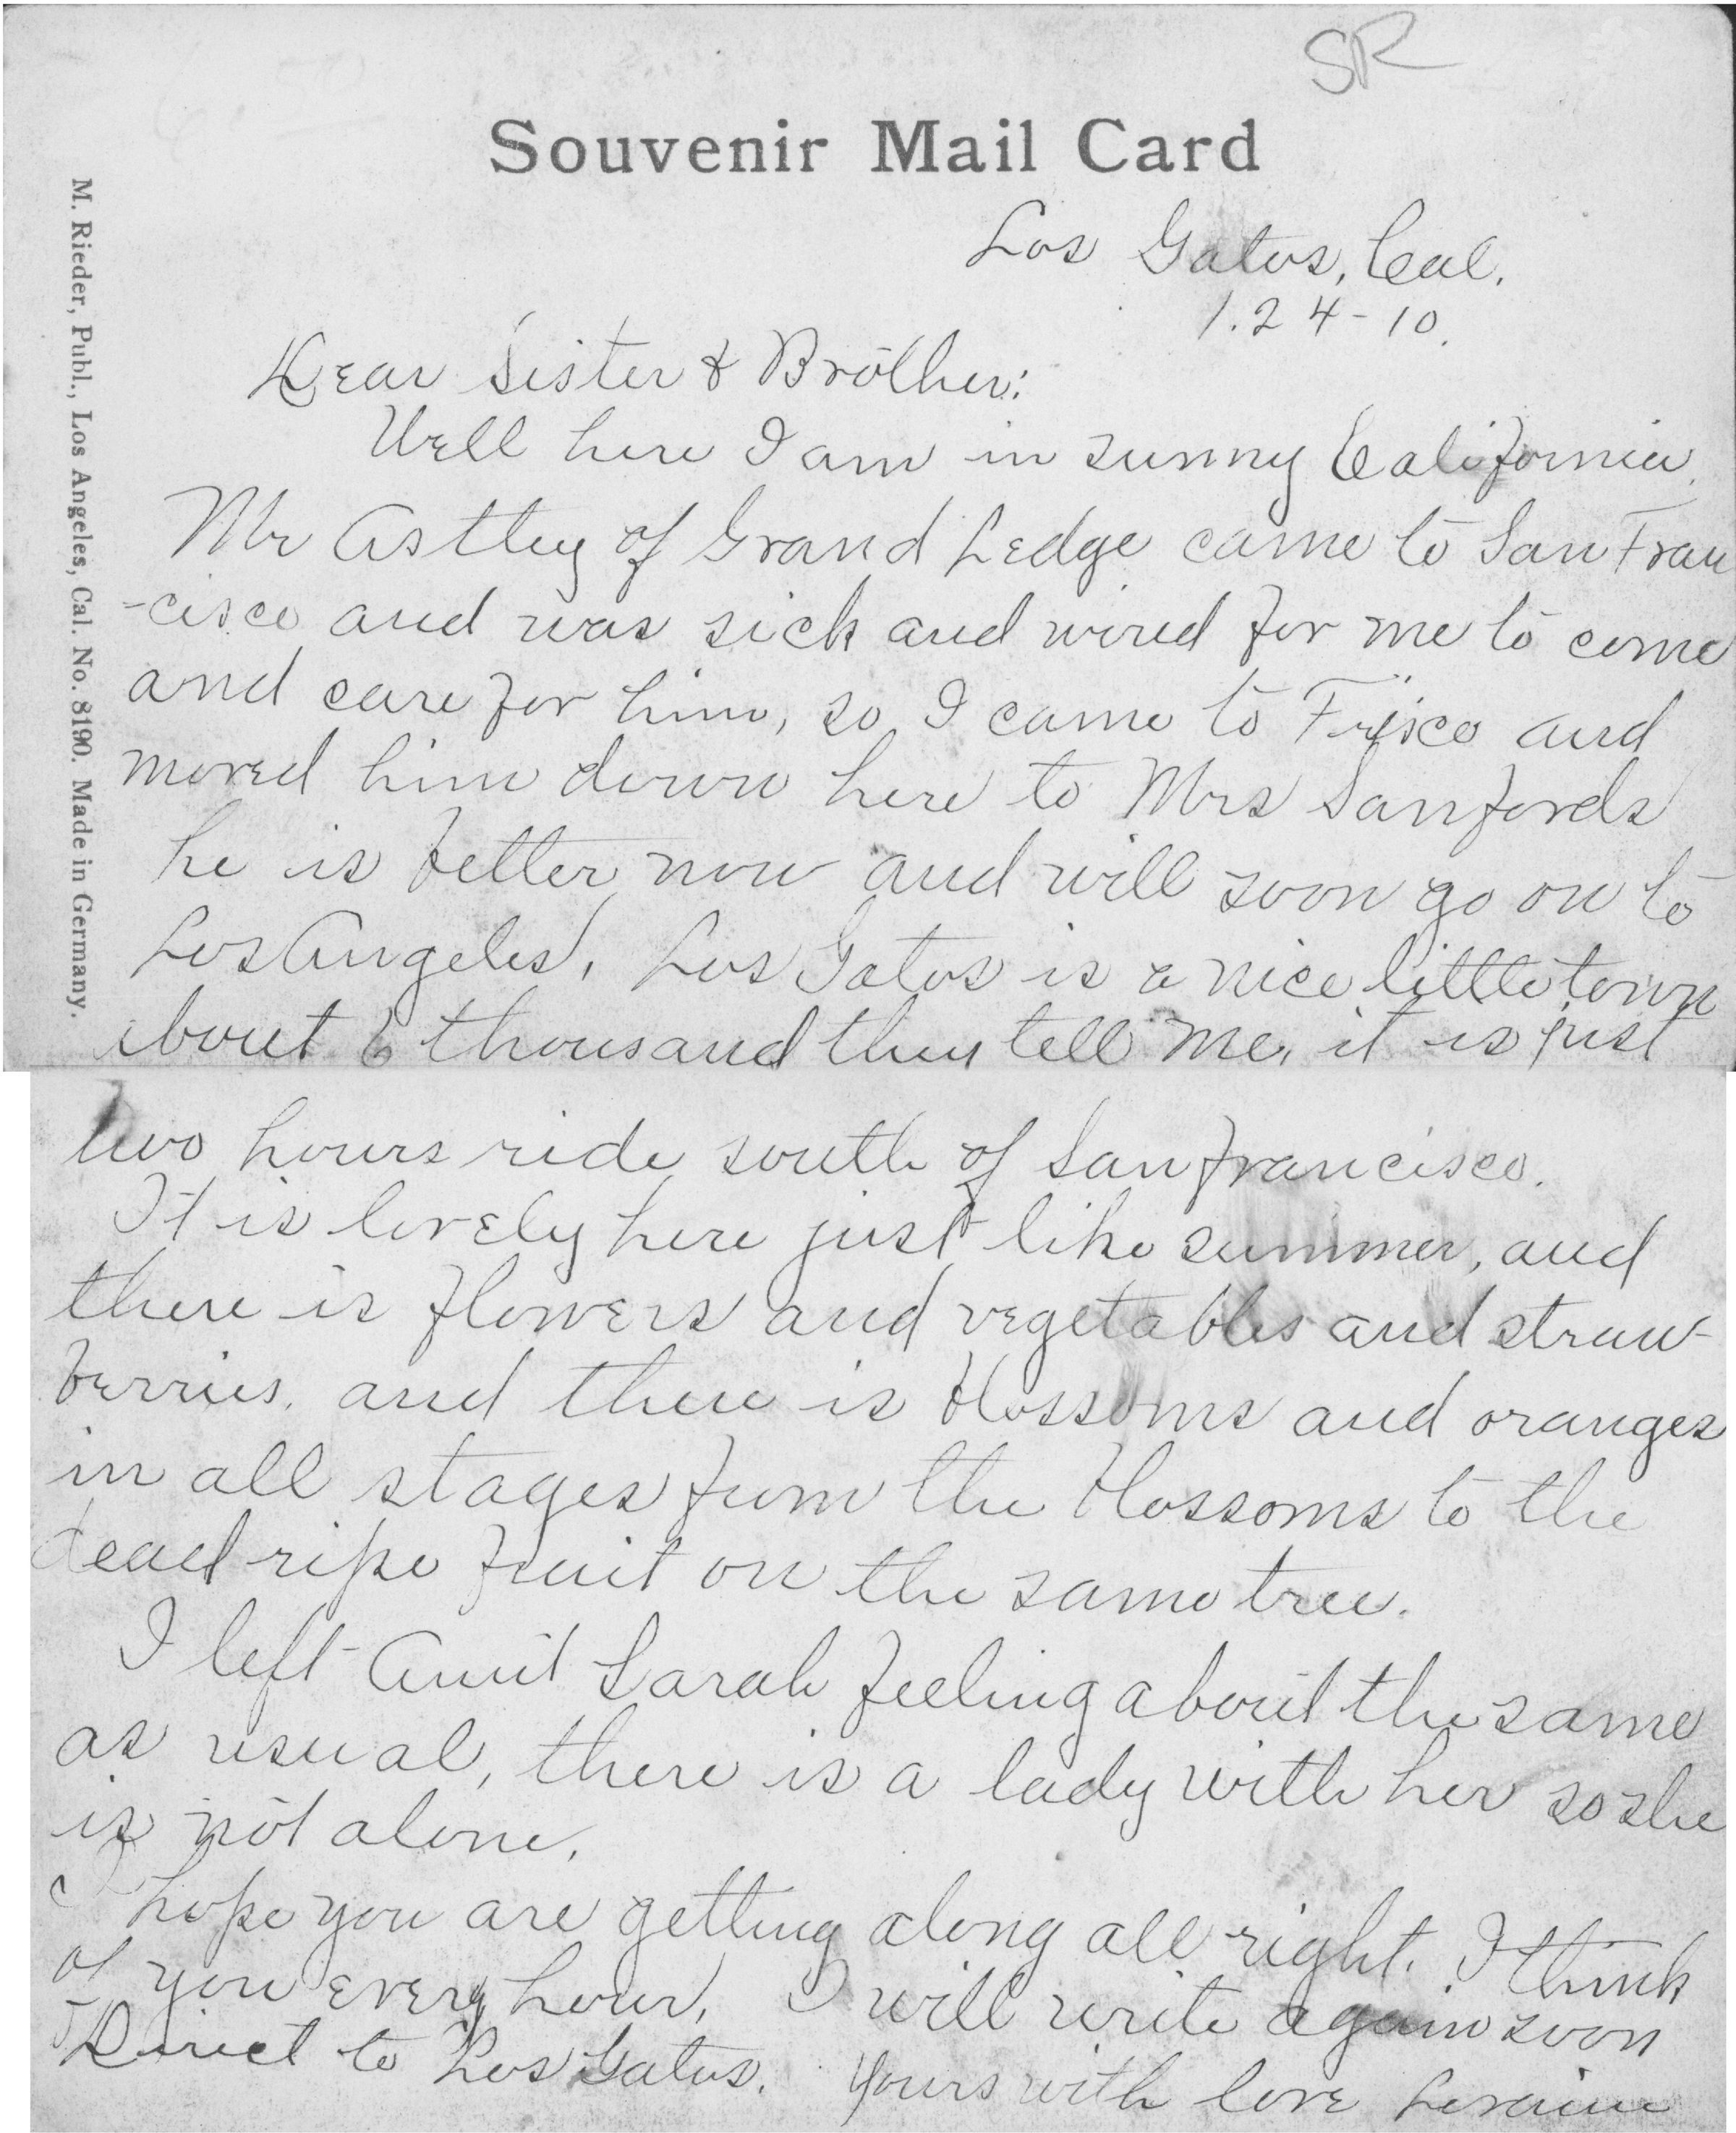 SR
Souvenir Mail Card
M. Rieder, Publ., Los Angeles, Cal. No. 8190. Made in Germany.
Los Gatos, Cal.
1.24-10.
Dear Sister & Brother:
Well here I am in sunny California.
Mr Astley of Grand Ledge came to San Fran
-cisco and was sick and wired for me to come
and care for him, so I came to Frisco and
moved him down here to Mrs Sanfords
he is better now and will soon go on to
Los Angeles. Los Gatos is a nice little town
about 6 thousand they tell me, it is just
two hours ride south of San francisco.
It is lovely here just like summer, and
there is flowers and vegetables and straw-
berries. and there is blossoms and oranges
in all stages from the blossoms to the
dead ripe fruit on the same tree.
I left Aunt Sarah feeling about the same
as usual, there is a lady with her so she
is not alone.
I hope you are getting along all right. I think
of you every hour, I will write again soon
Direct to Los Gatos. Yours with love Loraine